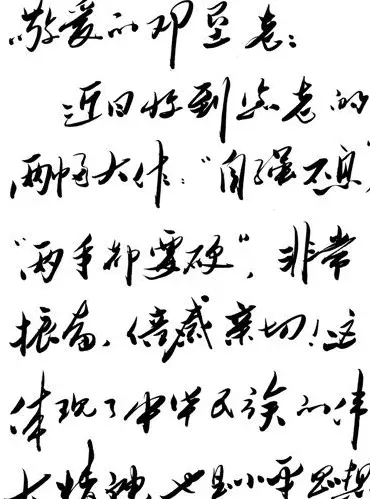 敬爱的邓垦老:
近日收到您老的
两幅大作:“自强不息”
“两手都要硬”,非常
振奋、倍感亲切!这
体现了中华民族的伟
大精神,也是小平思想